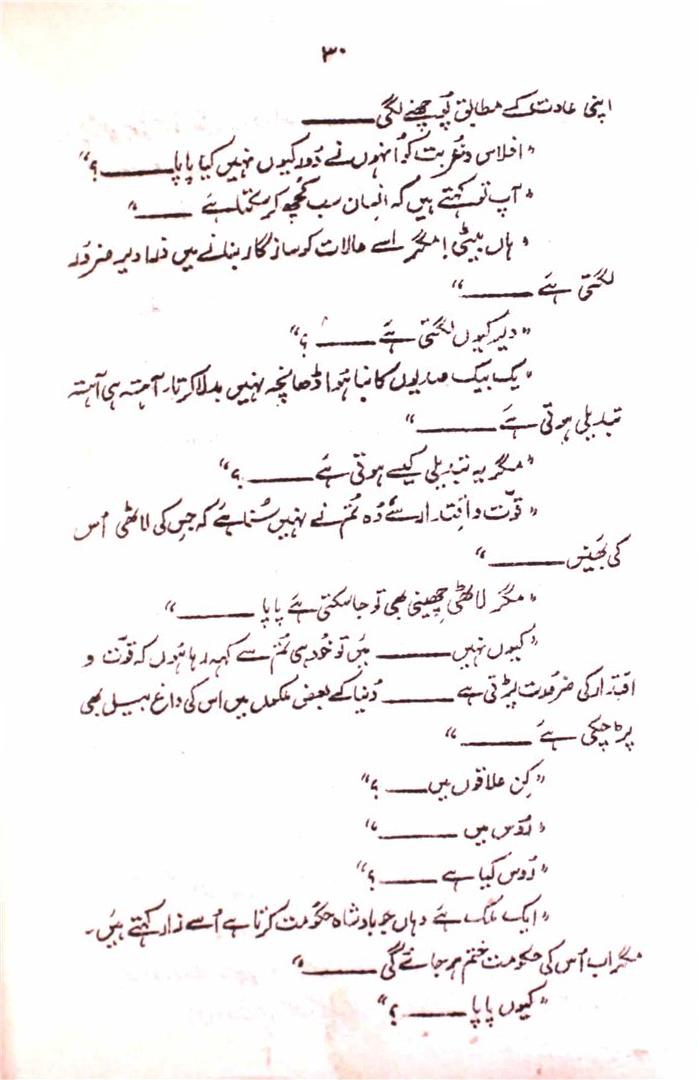 ۳۰
اپنی عادت کے مطابق پُوچھنے لگی ــــــــ
"افلاس و غُربت کو اُنہوں نے دُور کیوں نہیں کیا پاپا ــــــــ؟"
"آپ تو کہتے ہیں کہ انسان سب کُچھ کر سکتا ہے ــــــــ"
"ہاں بیٹی! مگر اسے حالات کو سازگار بنانے میں ذرا دیر ضرُور
لگتی ہے ــــــــ"
"دیر کیوں لگتی ہے ــــــــ؟"
"یک بیک صدیوں کا بنا ہُوا ڈھانچہ نہیں بدلا کرتا۔ آہستہ ہی آہستہ
تبدیلی ہوتی ہے ــــــــ"
"مگر یہ تبدیلی کیسے ہوتی ہے ــــــــ؟"
"قوّت و اقتدار سے وُہ تُم نے نہیں سُنا ہے کہ جِس کی لاٹھی اُس
کی بھَینس ــــــــ"
"مگر لاٹھی چھینی بھی تو جا سکتی ہے پاپا ــــــــ"
"کیوں نہیں ــــــــ میَں تو خُود ہی تُم سے کہہ رہا ہُوں کہ قوّت و
اقتدار کی ضرُورت پڑتی ہے ــــــــ دُنیا کے بعض مُلکوں میں اس کی داغ بیل بھی
پڑ چکی ہے ــــــــ"
"کِن علاقوں میں ــــــــ؟"
"رُوس میں ــــــــ"
"رُوس کیا ہے ــــــــ؟"
"ایک مُلک ہے وہاں جو بادشاہ حکُومت کرتا ہے اُسے زار کہتے ہیَں۔
مگر اب اُس کی حکُومت ختم ہو جائے گی ــــــــ"
"کیوں پاپا ــــــــ؟"